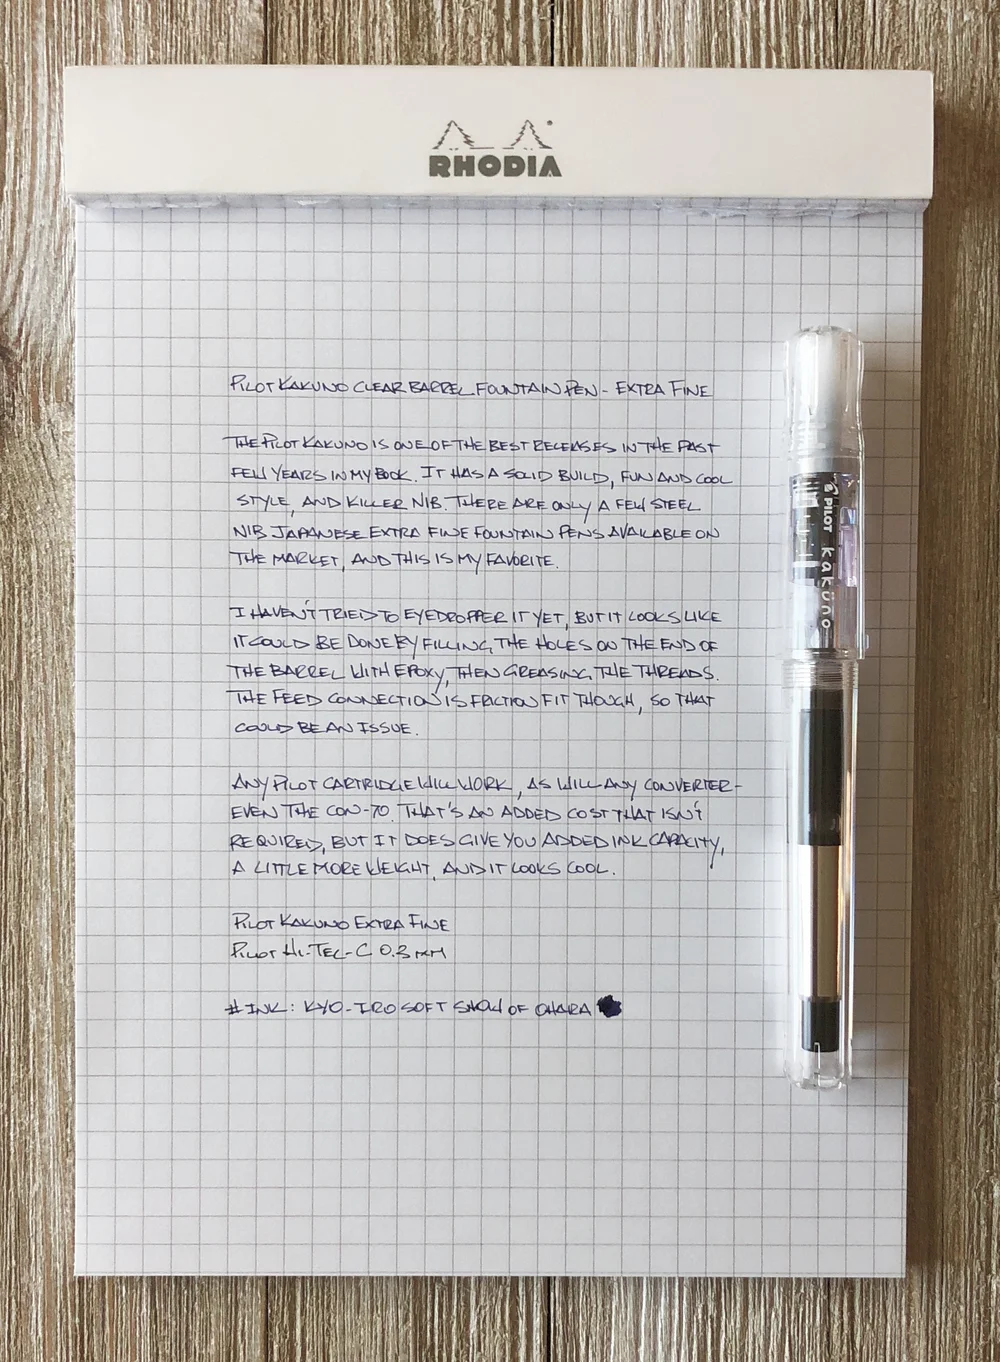 RHODIA
PILOT KAKUNO CLEAR BARREL FOUNTAIN PEN - EXTRA FINE
THE PILOT KAKUNO IS ONE OF THE BEST RELEASES IN THE PAST
FEW YEARS IN MY BOOK. IT HAS A SOLID BUILD, FUN AND COOL
STYLE, AND KILLER NIB. THERE ARE ONLY A FEW STEEL
NIB JAPANESE EXTRA FINE FOUNTAIN PENS AVAILABLE ON
THE MARKET, AND THIS IS MY FAVORITE.
I HAVEN'T TRIED TO EYEDROPPER IT YET, BUT IT LOOKS LIKE
IT COULD BE DONE BY FILLING THE HOLES ON THE END OF
THE BARREL WITH EPOXY, THEN GREASING THE THREADS.
THE FEED CONNECTION IS FRICTION FIT THOUGH, SO THAT
COULD BE AN ISSUE.
ANY PILOT CARTRIDGE WILL WORK, AS WILL ANY CONVERTER-
EVEN THE CON-70. THAT'S AN ADDED COST THAT ISN'T
REQUIRED, BUT IT DOES GIVE YOU ADDED INK CAPACITY,
A LITTLE MORE WEIGHT, AND IT LOOKS COOL.
PILOT KAKUNO EXTRA FINE
PILOT HI-TEC-C 0.3 MM
#INK: KYO-IRO SOFT SNOW OF OHARA
PILOT kaküno